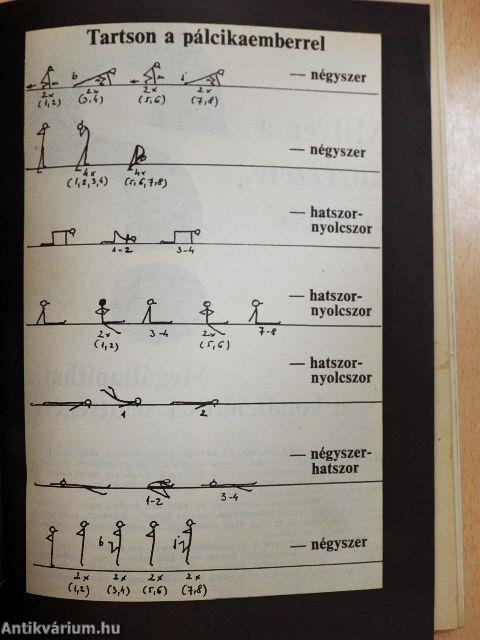 Tartson a pálcikaemberrel
b j — négyszer
2x 2x 2x 2x
(1,2) (3,4) (5,6) (7,8)
— négyszer
4x 4x
(1,2,3,4) (5,6,7,8)
— hatszor-
nyolcszor
1-2 3-4
— hatszor-
nyolcszor
2x 3-4 2x 7-8
(1,2) (5,6)
— hatszor-
nyolcszor
1 2
— négyszer-
hatszor
1-2 3-4
b j — négyszer
2x 2x 2x 2x
(1,2) (3,4) (5,6) (7,8)
Antikvárium.hu